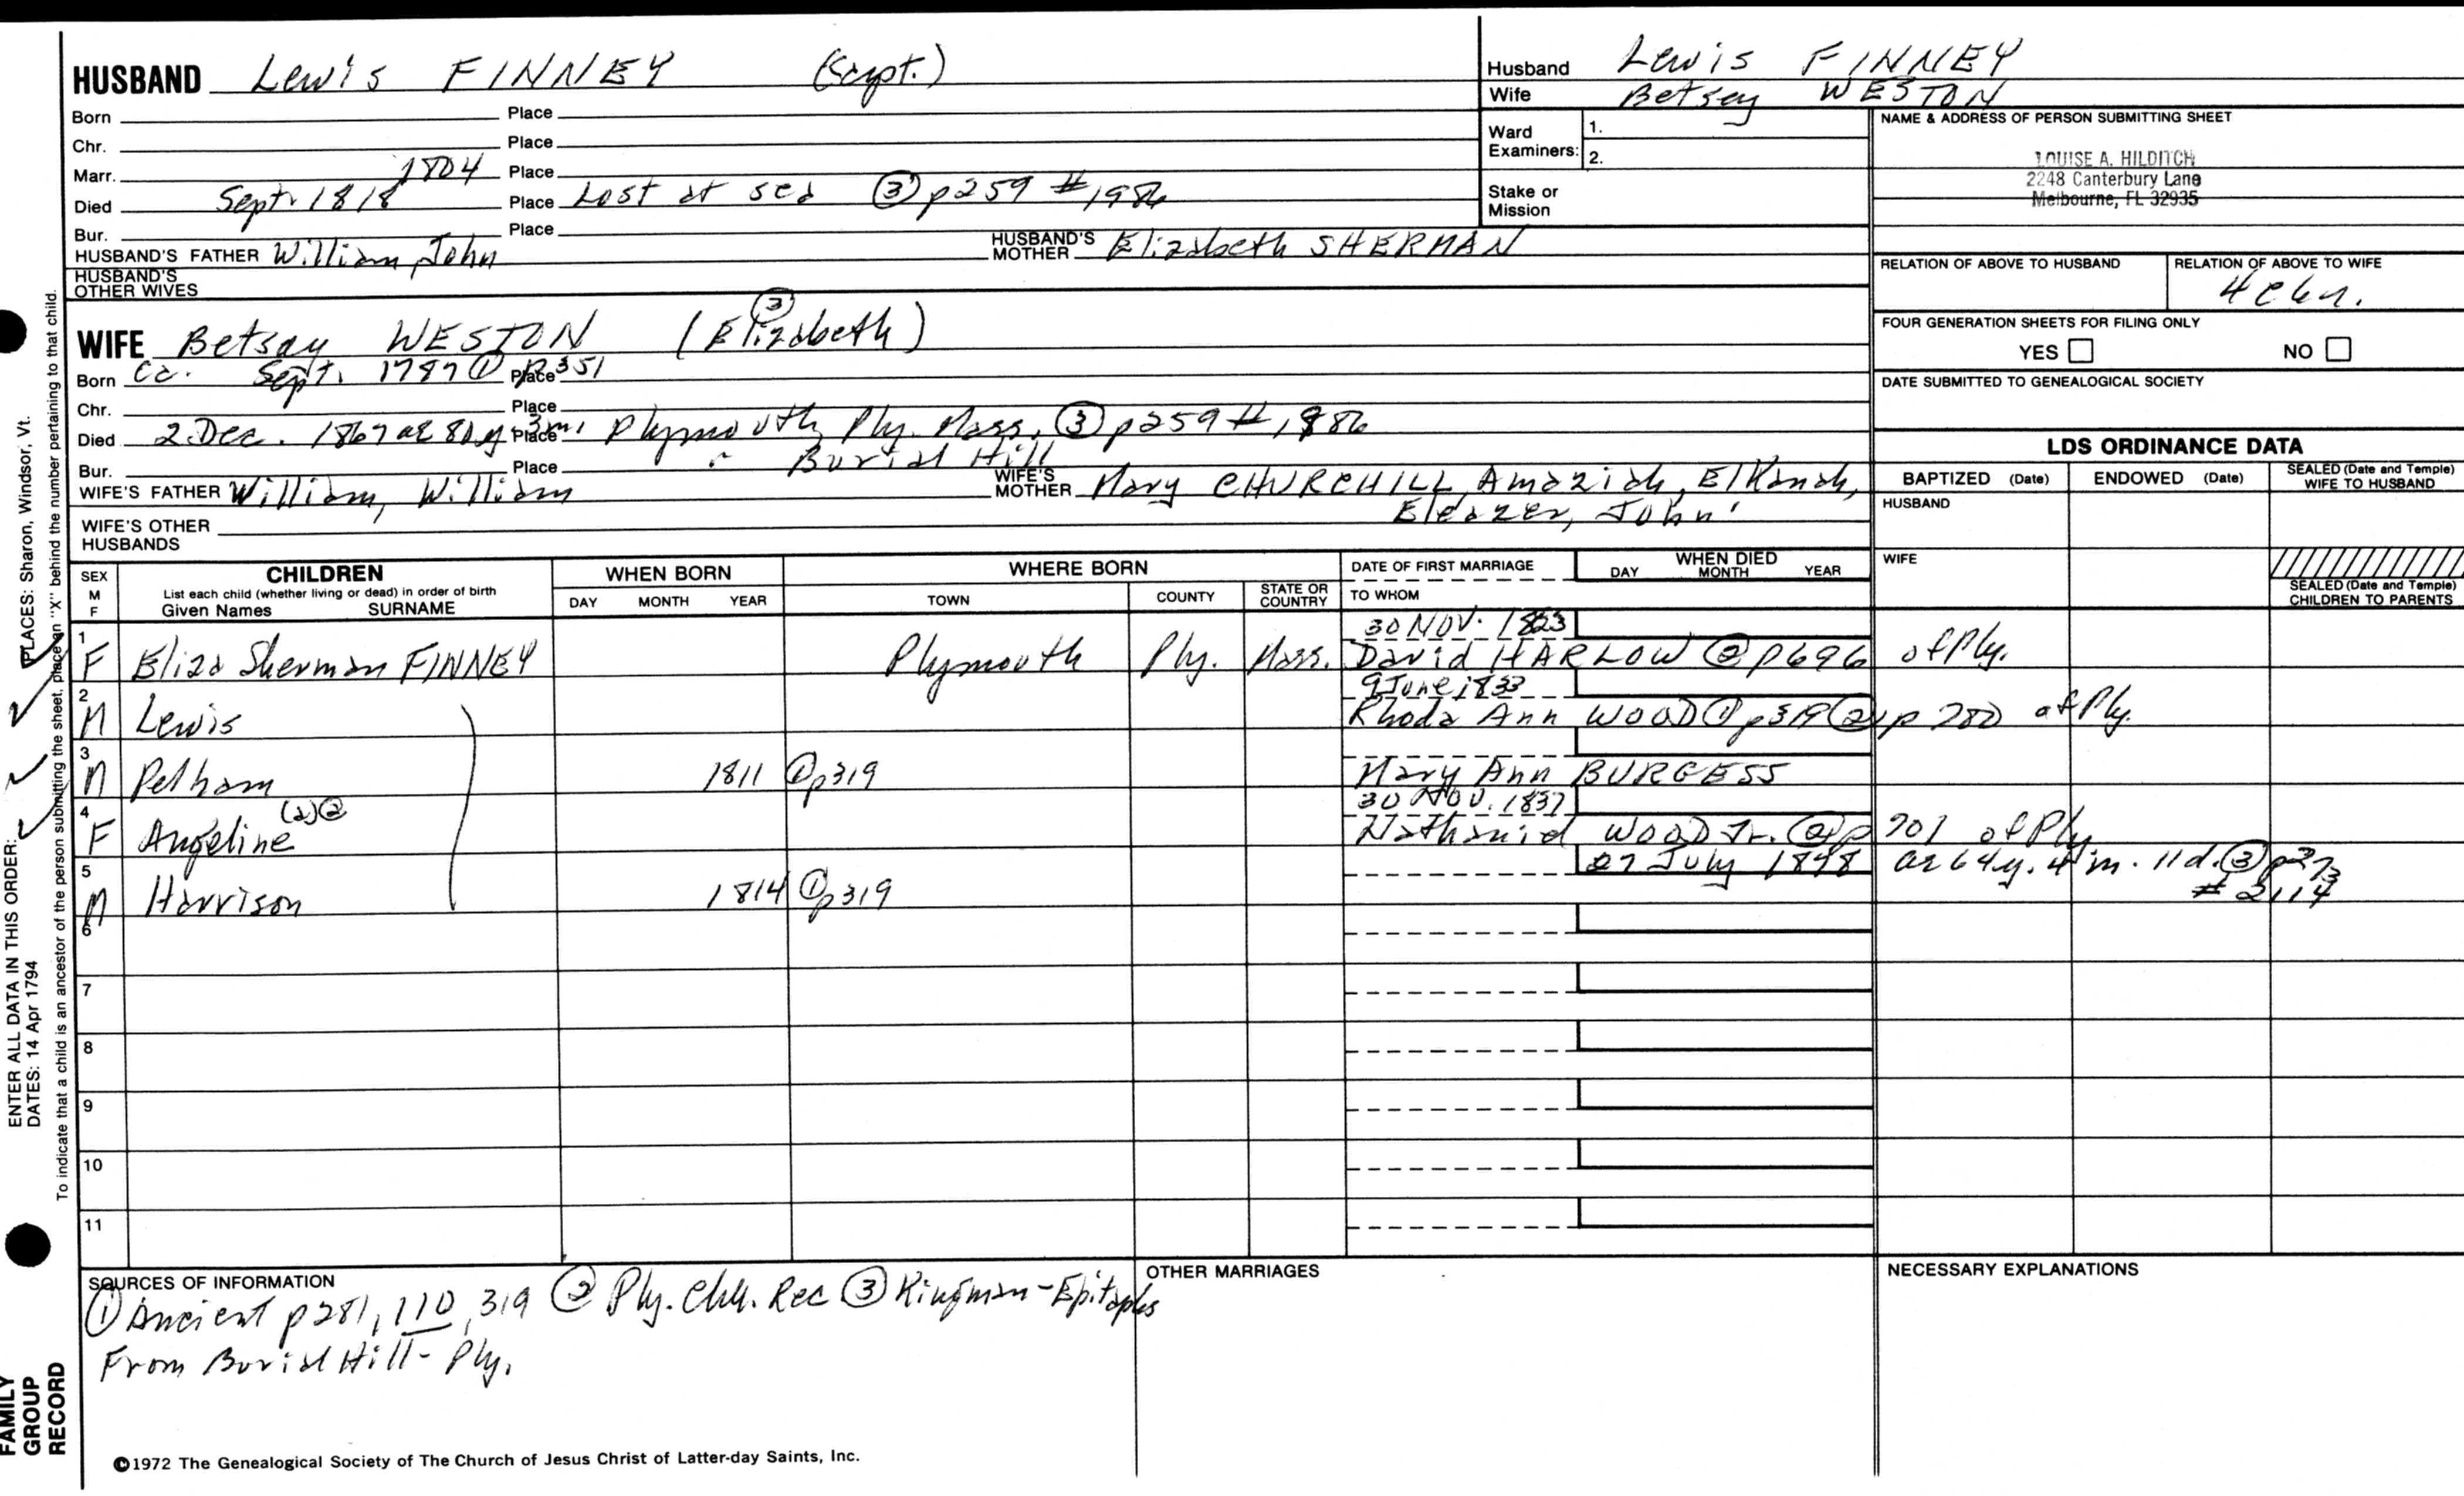 HUSBAND Lewis FINNEY (Capt.)
Born Place
Chr. Place
Marr. 1804 Place
Died Sept. 1818 Place Lost at sea ③ p259 #1986
Bur. Place
HUSBAND'S FATHER William, John HUSBAND'S MOTHER Elizabeth SHERMAN
HUSBAND'S OTHER WIVES
Husband Lewis FINNEY
Wife Betsey WESTON
Ward Examiners: 1.
2.
Stake or Mission
NAME & ADDRESS OF PERSON SUBMITTING SHEET
LOUISE A. HILDITCH
2248 Canterbury Lane
Melbourne, FL 32935
RELATION OF ABOVE TO HUSBAND RELATION OF ABOVE TO WIFE
4c6r.
FOUR GENERATION SHEETS FOR FILING ONLY
YES NO
DATE SUBMITTED TO GENEALOGICAL SOCIETY
WIFE Betsay WESTON (Elizabeth) ③
Born Ca. Sept. 1787 ① p351 Place
Chr. Place
Died 2 Dec. 1867 ae 80y. 3m. Place Plymouth, Ply. Mass. ③ p259 #1986
Bur. Place " Burial Hill
WIFE'S FATHER William, William WIFE'S MOTHER Mary CHURCHILL, Amaziah, Elkanah,
Eleazer, John'
WIFE'S OTHER HUSBANDS
LDS ORDINANCE DATA
BAPTIZED (Date) ENDOWED (Date) SEALED (Date and Temple) WIFE TO HUSBAND
HUSBAND
WIFE
SEALED (Date and Temple) CHILDREN TO PARENTS
SEX M F CHILDREN List each child (whether living or dead) in order of birth Given Names SURNAME
WHEN BORN DAY MONTH YEAR
WHERE BORN TOWN COUNTY STATE OR COUNTRY
DATE OF FIRST MARRIAGE TO WHOM
WHEN DIED DAY MONTH YEAR
30 NOV. 1823
1 F Eliza Sherman FINNEY Plymouth Ply. Mass. David HARLOW ② p696 of Ply.
9 June 1833
2 M Lewis Rhoda Ann WOOD ① p319 ② p 700 of Ply.
3 M Pelham 1811 ① p319 Mary Ann BURGESS
30 NOV. 1837
4 F Angeline (2) ② Nathaniel WOOD Jr. ② p 701 of Ply
27 July 1878 ae 64y. 4m. 11d. ③ p273
5 M Harrison 1814 ① p319 #2114
6
7
8
9
10
11
SOURCES OF INFORMATION
① Ancient p281, 110, 319 ② Ply. Chh. Rec ③ Kingman-Epitaphs
From Burial Hill - Ply.
OTHER MARRIAGES
NECESSARY EXPLANATIONS
©1972 The Genealogical Society of The Church of Jesus Christ of Latter-day Saints, Inc.
FAMILY GROUP RECORD
ENTER ALL DATA IN THIS ORDER:
DATES: 14 Apr 1794
PLACES: Sharon, Windsor, Vt.
To indicate that a child is an ancestor of the person submitting the sheet, place an "X" behind the number pertaining to that child.